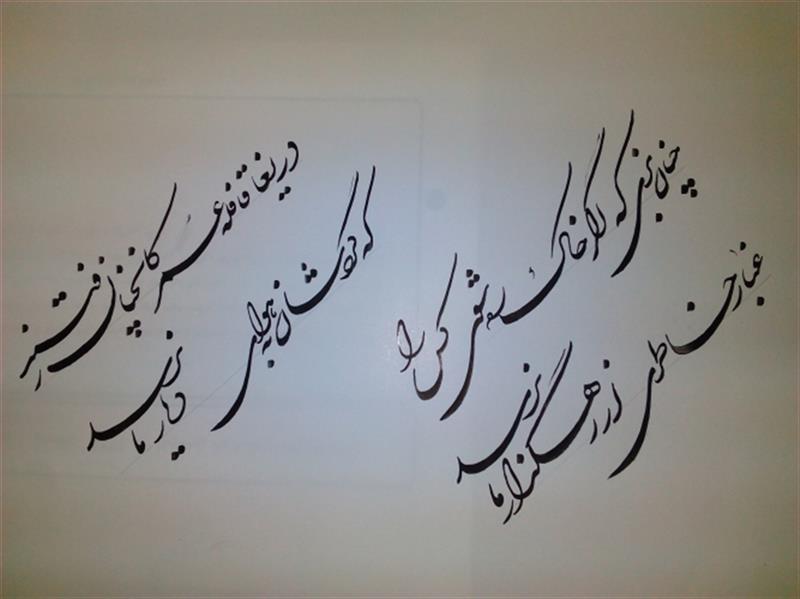 چنان بزی که اگر خاک ره شوی کس را
غبار خاطری از رهگذار ما نرسد
دریغا قافله عمر کانچنان رفتند
که گردشان به هوای دیار ما نرسد